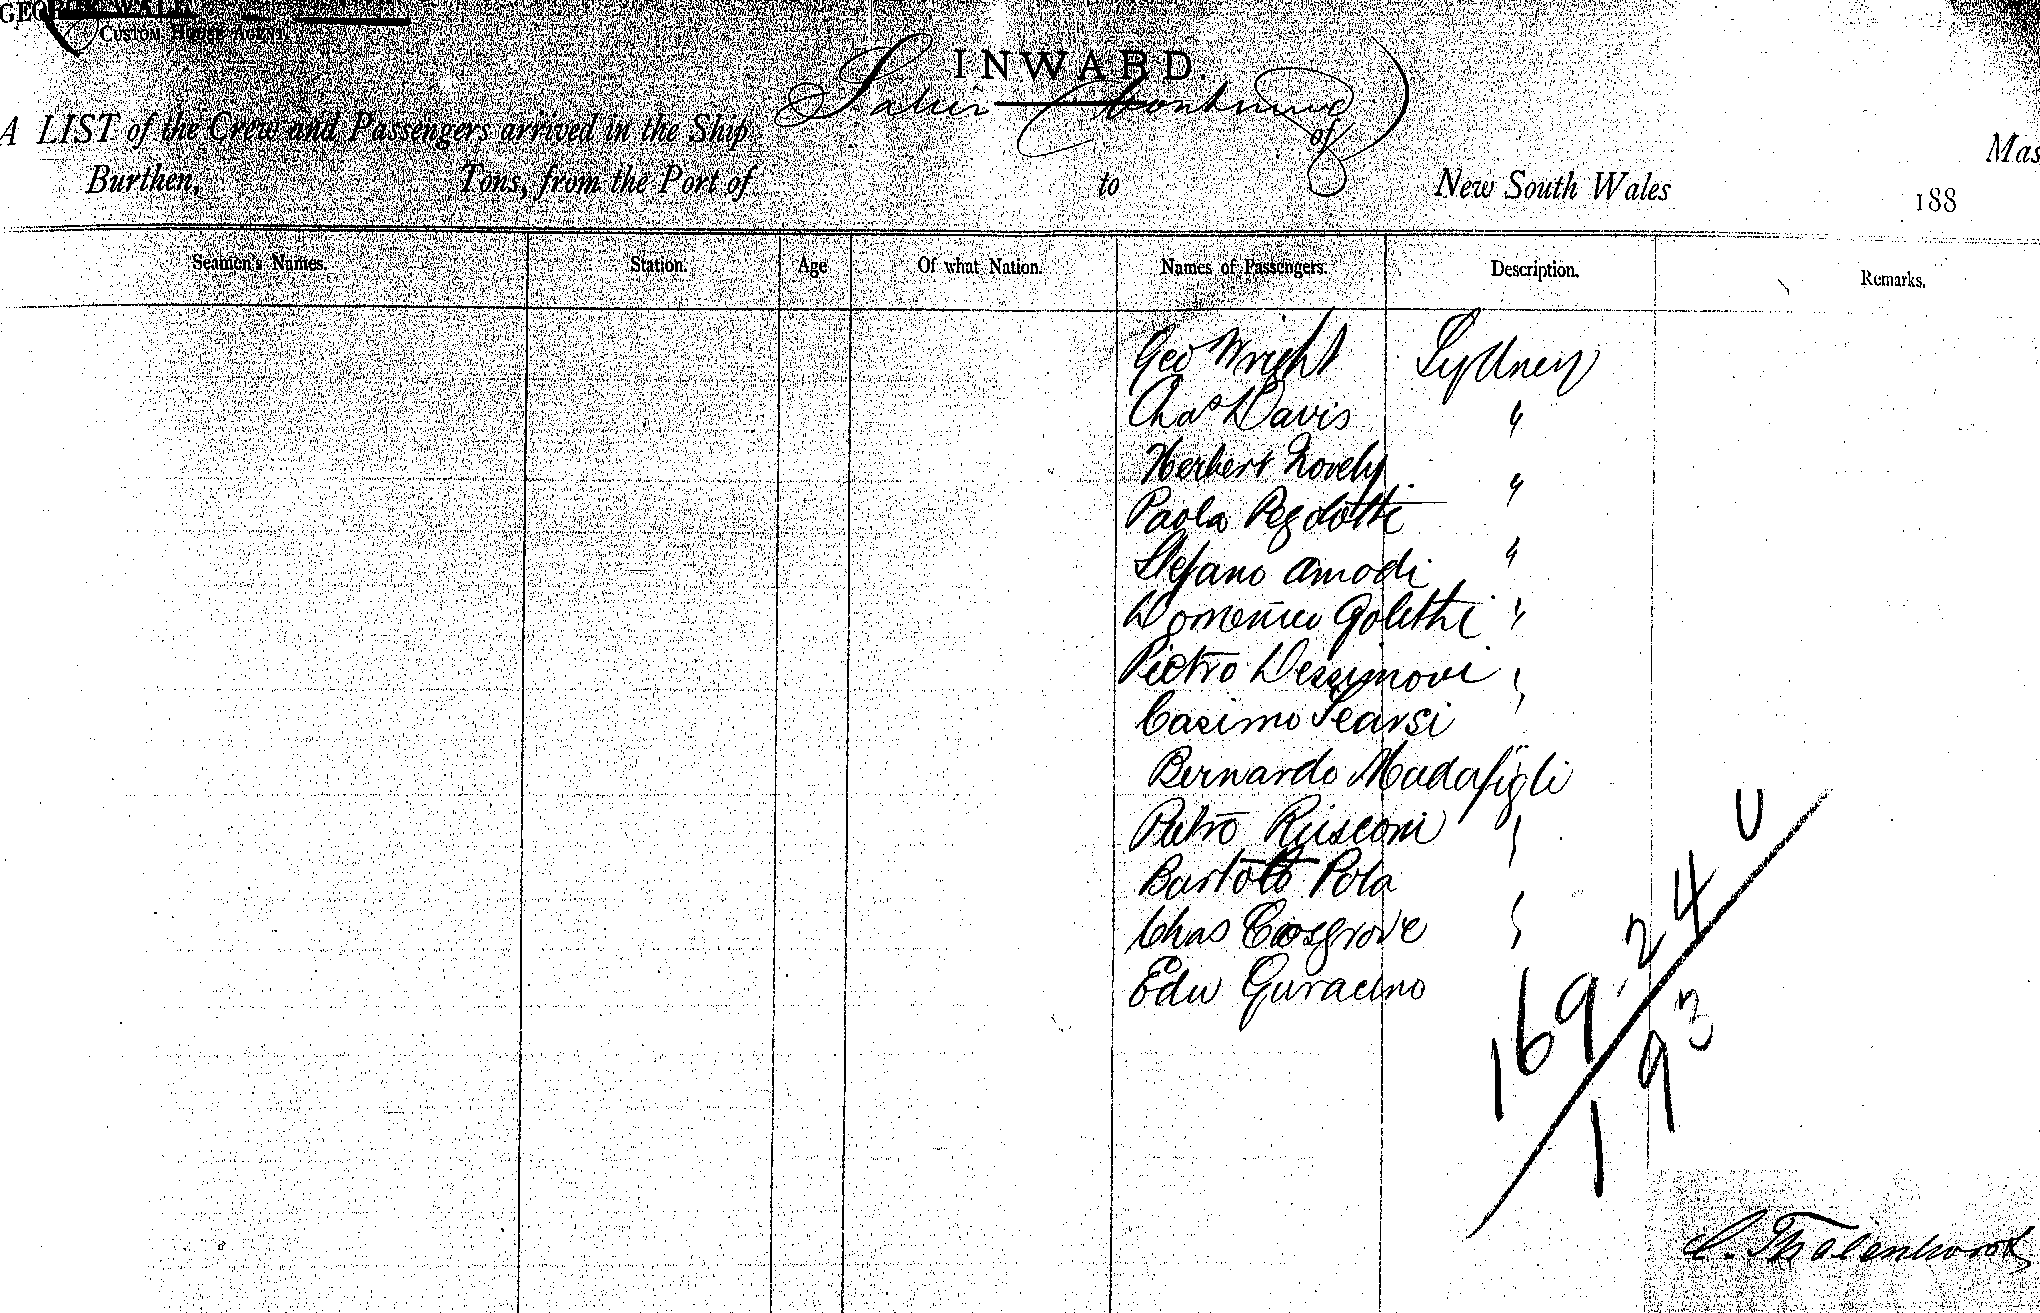 CUSTOM HOUSE AGENT.
INWARD.
Salier (Continued)
A LIST of the Crew and Passengers arrived in the Ship of Mas
Burthen, Tons, from the Port of to New South Wales 188
Seamen's Names. Station. Age Of what Nation. Names of Passengers. Description. Remarks.
Geo Wright Sydney
Chas Davis "
Herbert Lovely "
Paola Pezdotti
Stefano Amodi "
Domenico Goletti "
Pietro "
Casimo Searsi
Bernardo Madafigli
Pietro Rusconi
Bartolo Pola
Chas Cosgrove
Edw Guracino
169. 24 0
193
C. Thalenhorst